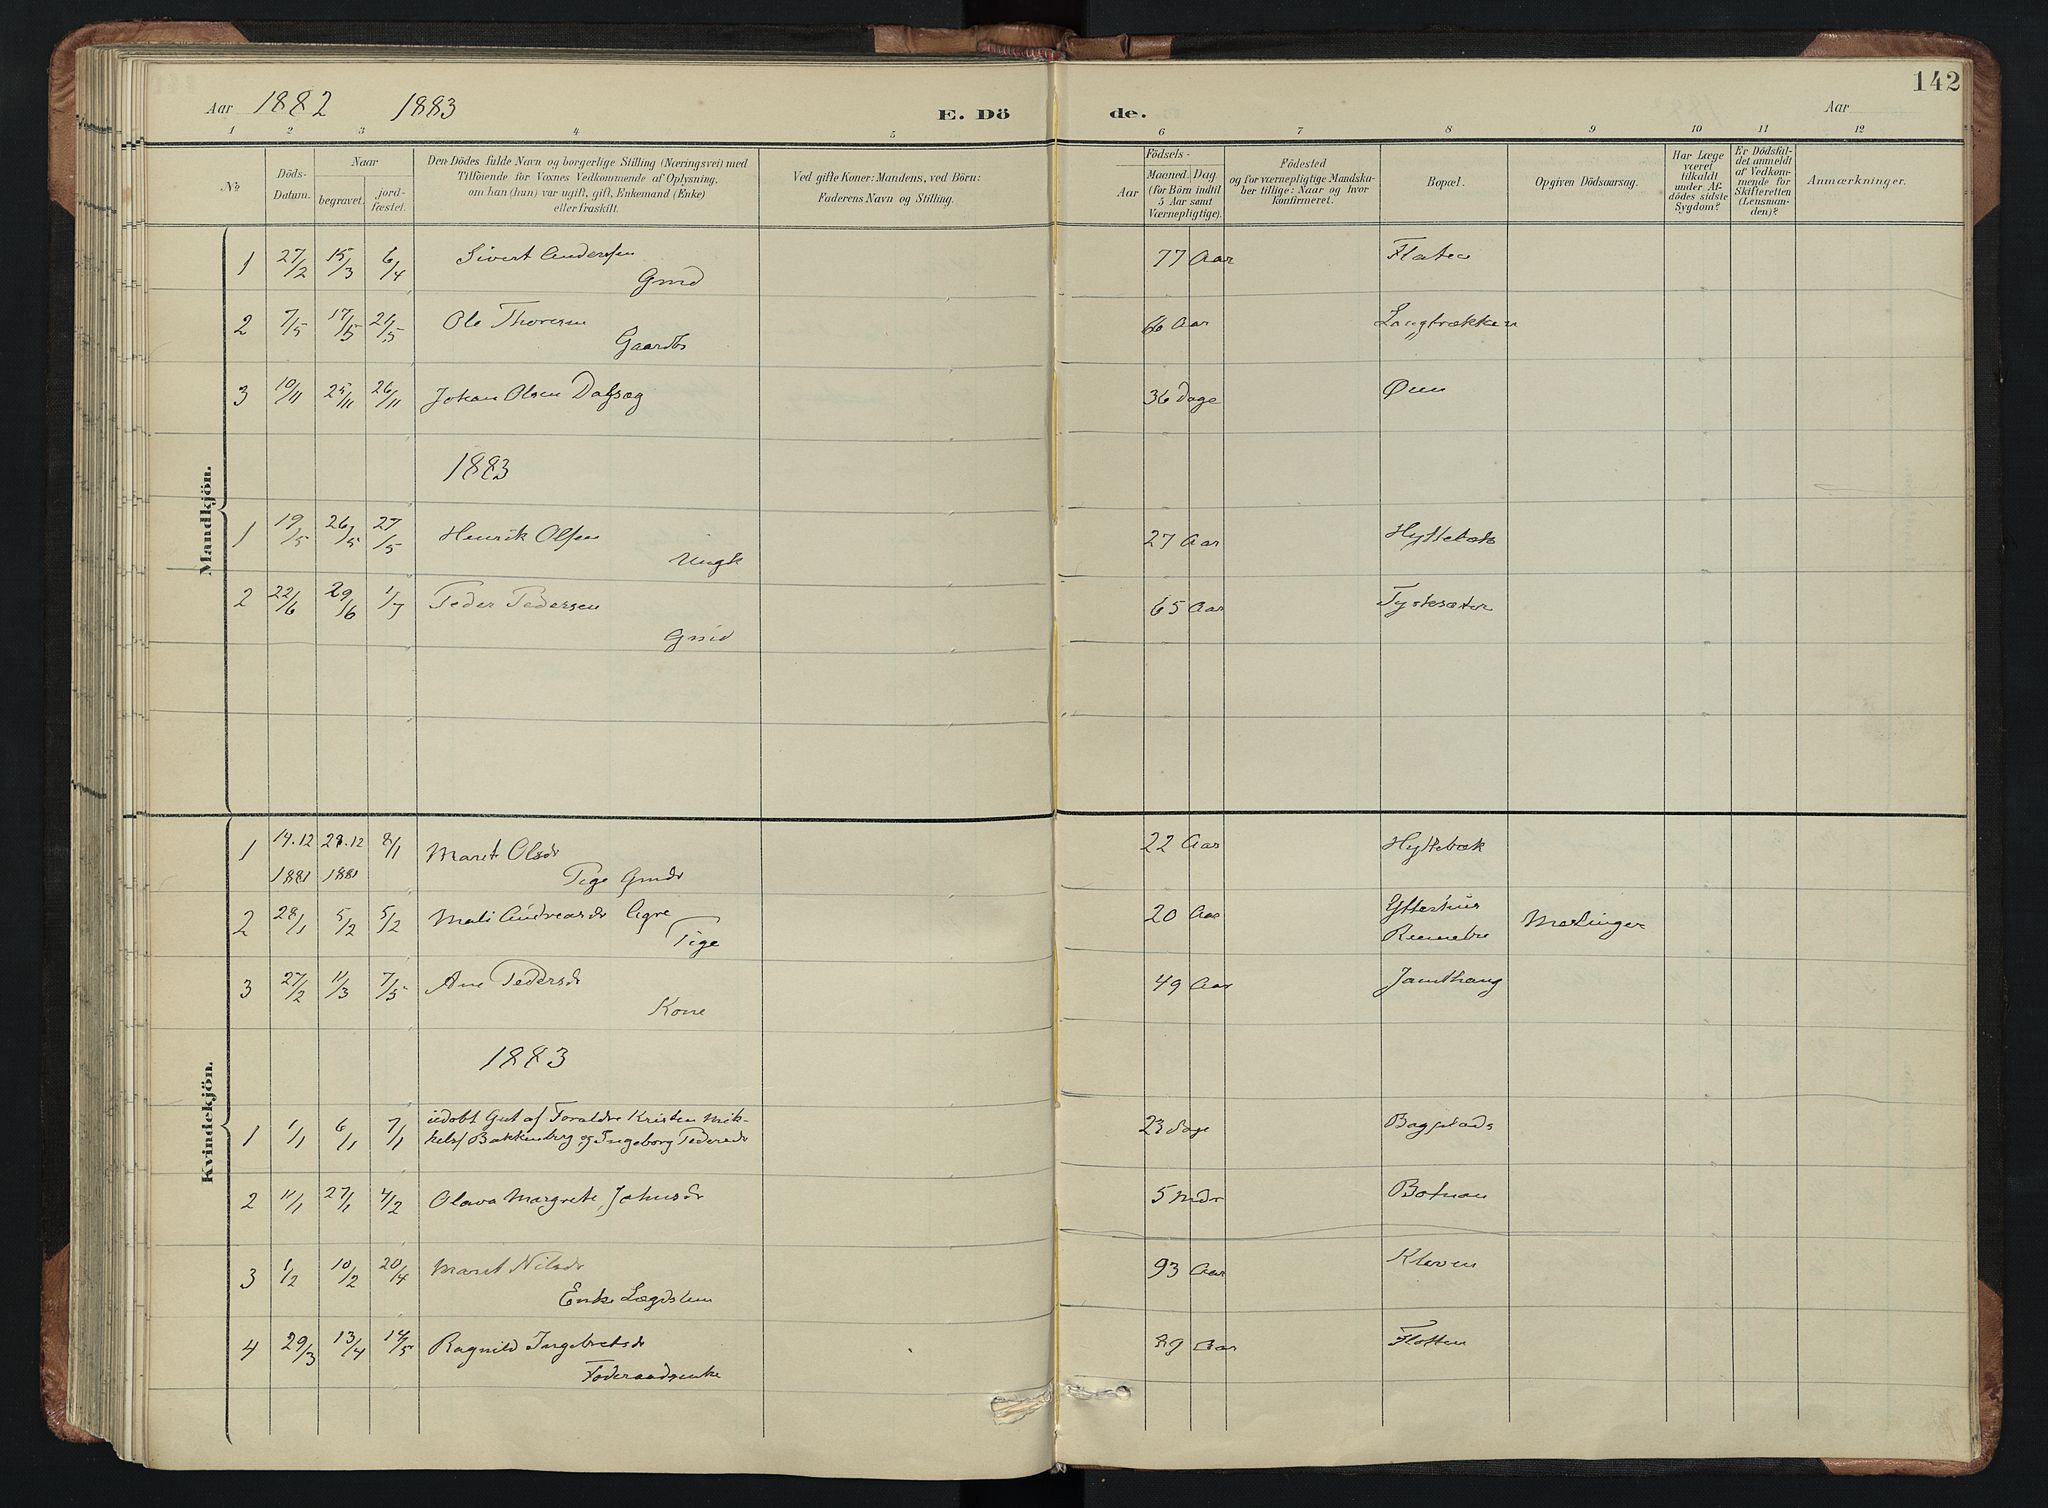 142
Aar 1882 1883 E. Dö de. Aar
1 2 3 4 5 6 7 8 9 10 11 12
No.
Döds-Datum.
Naar
begravet. jordfæstet.
Den Dödes fulde Navn og borgerlige Stilling (Næringsvei) med
Tilföiende for Voxnes Vedkommende af Oplysning,
om han (hun) var ugift, gift, Enkemand (Enke)
eller fraskilt.
Ved gifte Koner: Mandens, ved Börn:
Faderens Navn og Stilling.
Födsels-
Aar Maaned. Dag
(for Börn indtil
5 Aar samt
Værnepligtige).
Födested
og for værnepligtige Mandska-
ber tillige: Naar og hvor
konfirmeret.
Bopæl.
Opgiven Dödsaarsag.
Har Læge
været
tilkaldt
under Af-
dödes sidste
Sygdom?
Er Dödsfal-
det anmeldt
af Vedkom-
mende for
Skifteretten
(Lensman-
den)?
Anmærkninger.
Mandkjön.
1 27/2 15/3 6/4 Sivert Anderssen 77 Aar Flaten
Gmd
2 7/5 17/5 21/5 Ole Thoresen 66 Aar Langtrækken
Gaardbr
3 10/11 25/11 26/11 Johan Olsen Dalsæg 36 Dage
1883
1 19/5 26/5 27/5 Henrik Olsen 27 Aar Hyttebæk
Ungk
2 22/6 29/6 1/7 Peder Pedersen 65 Aar Tysksæter
Gmd
Kvindekjön.
1 14.12 28.12 8/1 Maret Olsdr 22 Aar Hyttebæk
1881 1881 Pige Gmdr
2 28/1 5/2 5/2 Mali Andreasdr Agre 20 Aar Ytterhus
Pige Rennebu
3 27/2 11/3 7/5 Ane Pedersdr 49 Aar Jamthaug
Kone
1883
1 1/1 6/1 7/1 udøbt Gut af Forældre Kristen Mik- 23 Dage
kels/ Bakkenberg og Ingeborg Pedersdr
2 11/1 27/1 4/2 Olava Margrete Johnsdr 5 Mdr Botnan
3 1/2 10/2 20/4 Maret Nilsdr 93 Aar Kleven
Enke Lægdslem
4 29/3 13/4 14/5 Ragnild Ingebretsdr 89 Aar Flotten
Føderaadsenke